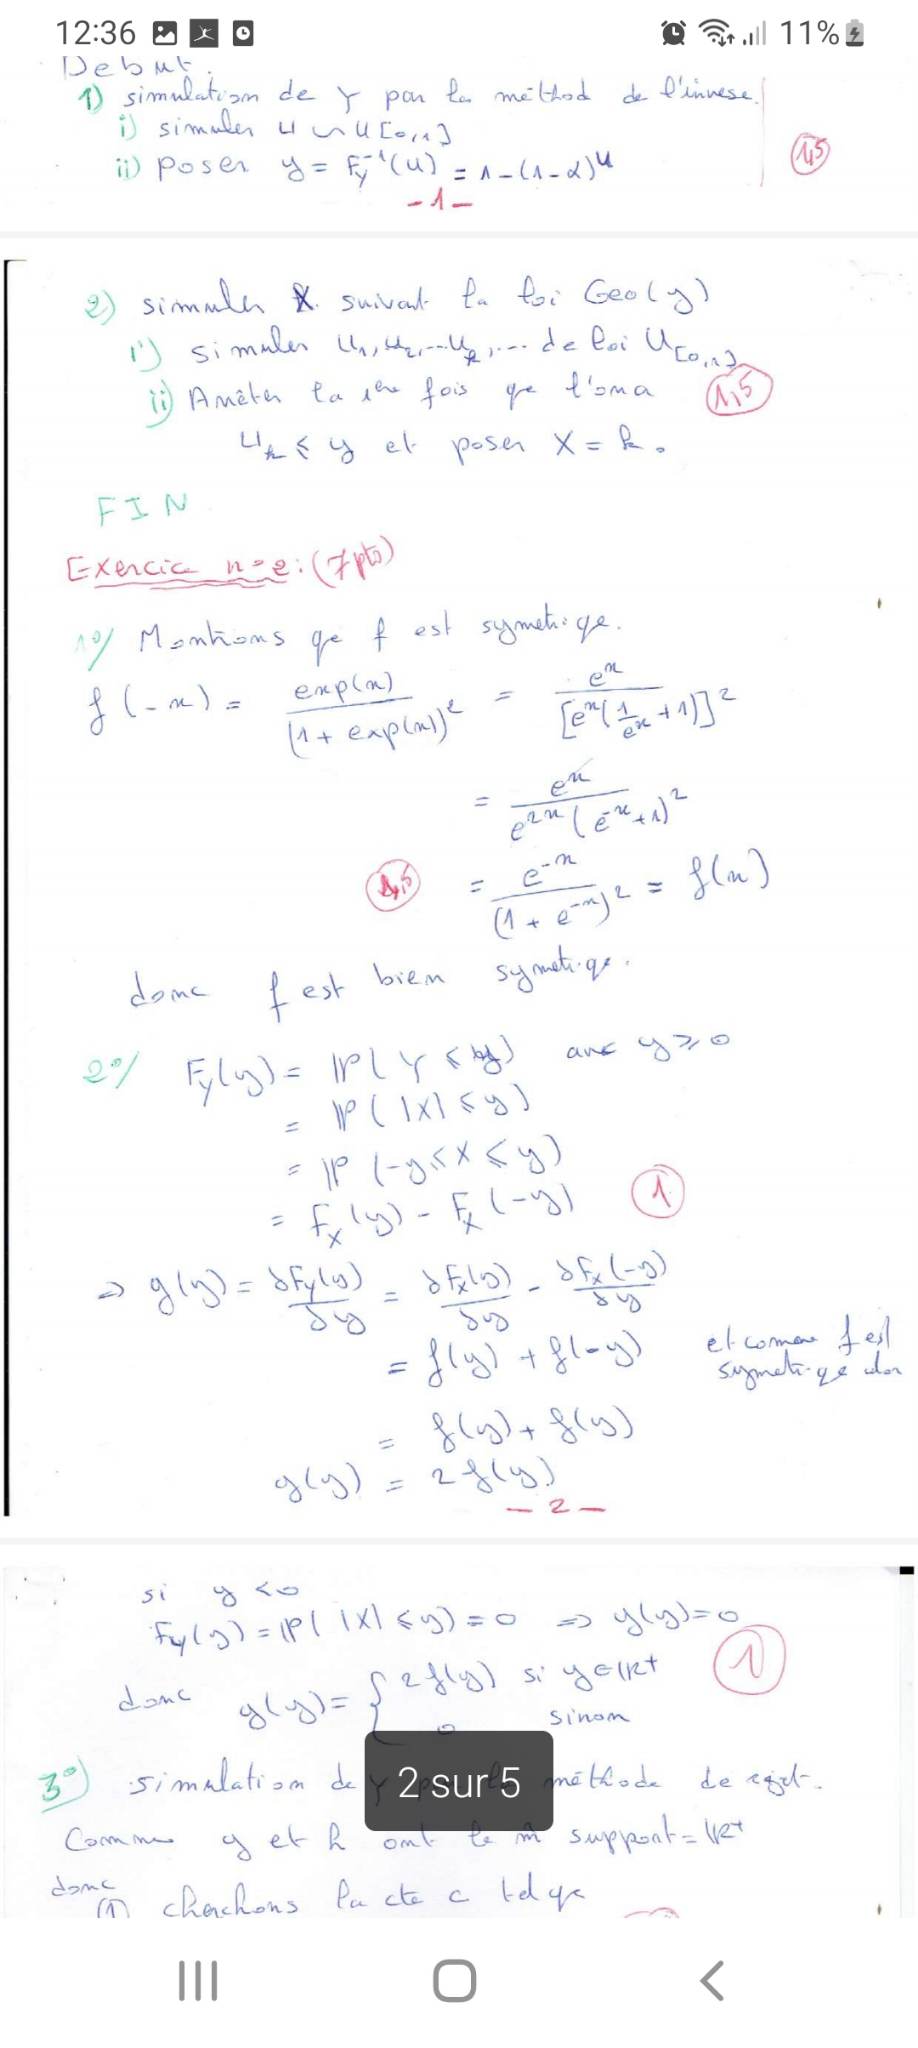 12:36 11%
Debut.
1) simulation de Y par la méthod de l'invese.
i) simuler U ∽ U[0,1]
ii) poser y = F_Y^{-1}(U) = 1-(1-α)^U
1,5
- 1 -
2) simuler X suivant la loi Geo(y)
i) simuler U_1, U_2, ... U_k, ... de loi U_[0,1]
ii) Arrêter la 1ère fois que l'on a
1,5
U_k ≤ y et poser X = k.
FIN
Exercice n=2: (7pts)
1°/ Montrons que f est symetrique.
f(-x) = exp(x) / (1 + exp(x))^2 = e^x / [e^x(1/e^x + 1)]^2
= e^x / e^{2x}(e^{-x}+1)^2
1,5
= e^{-x} / (1 + e^{-x})^2 = f(x)
donc f est bien symetrique.
2°/ F_Y(y) = IP(Y ≤ y) avec y ≥ 0
= IP(|X| ≤ y)
= IP(-y ≤ X ≤ y)
= F_X(y) - F_X(-y)
1
⇒ g(y) = ∂F_Y(y)/∂y = ∂F_X(y)/∂y - ∂F_X(-y)/∂y
= f(y) + f(-y) et comme f est
symetrique
= f(y) + f(y)
g(y) = 2f(y)
- 2 -
si y < 0
F_Y(y) = IP(|X| ≤ y) = 0 ⇒ g(y) = 0
1
donc g(y) = { 2f(y) si y ∈ IR+
0 sinon
3°) simulation de Y méthode de rejet.
2 sur 5
Comme g et h ont le m̂ support = IR+
donc
(1) cherchons la cte c tel que